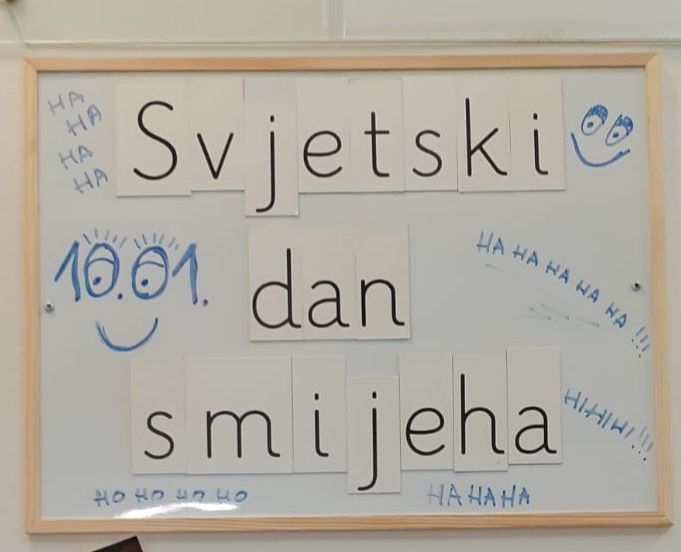 HA
HA
HA
HA
Svjetski
10.01.
dan
HA HA HA HA HA !!!
smijeha
HIHIHI!!!
HO HO HO HO
HAHAHA